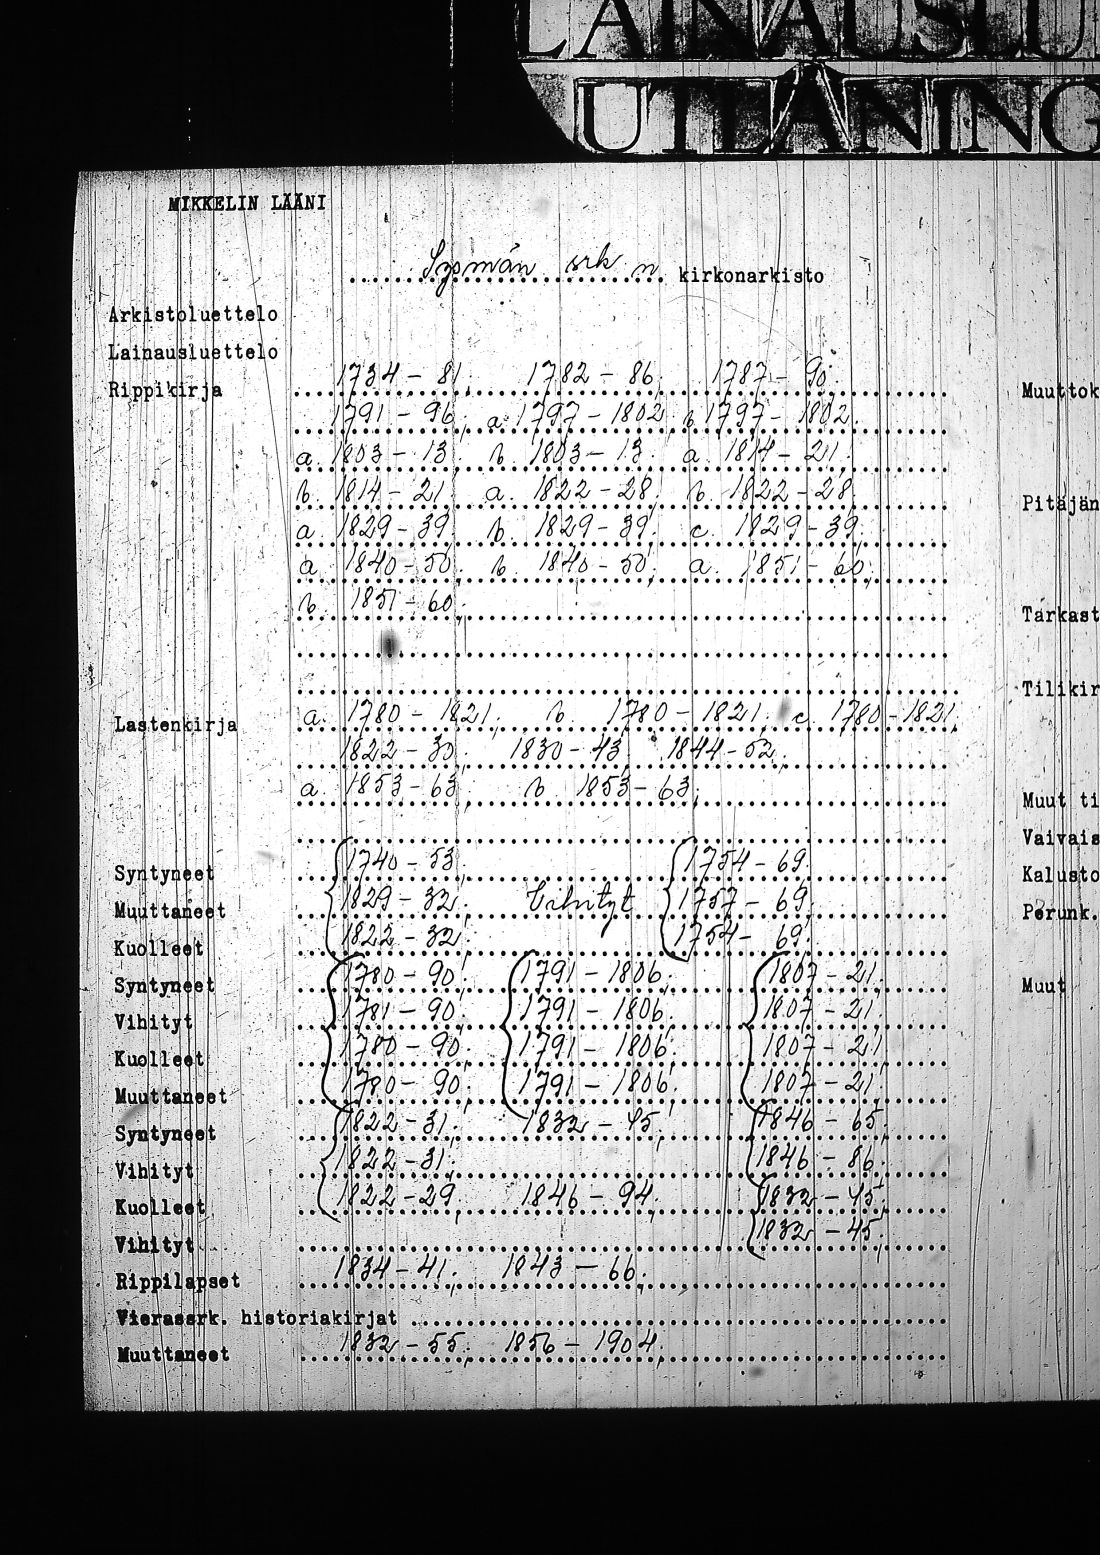 LAINAUSLU
UTLÅNING
MIKKELIN LÄÄNI
Sysmän srk n kirkonarkisto
Arkistoluettelo
Lainausluettelo
Rippikirja 1734 - 81; 1782 - 86; 1787 - 90; Muuttok
1791 - 96; a. 1797 - 1802; b. 1797 - 1802;
a. 1803 - 13; b. 1803 - 13; a. 1814 - 21;
b. 1814 - 21; a. 1822 - 28; b. 1822 - 28; Pitäjän
a. 1829 - 39; b. 1829 - 39; c. 1829 - 39;
a. 1840 - 50; b. 1840 - 50; a. 1851 - 60;
b. 1851 - 60; Tarkast
Tilikir
Lastenkirja a. 1780 - 1821; b. 1780 - 1821; c. 1780 - 1821;
1822 - 30; 1830 - 43; 1844 - 52;
a. 1853 - 63; b. 1853 - 63; Muut ti
Vaivais
Syntyneet 1740 - 53; 1754 - 69; Kalusto
Muuttaneet 1829 - 32; Vihityt 1757 - 69; Perunk.
Kuolleet 1822 - 32; 1754 - 69;
Syntyneet 1780 - 90; 1791 - 1806; 1807 - 21; Muut
Vihityt 1781 - 90; 1791 - 1806; 1807 - 21;
Kuolleet 1780 - 90; 1791 - 1806; 1807 - 21;
Muuttaneet 1780 - 90; 1791 - 1806; 1807 - 21;
Syntyneet 1822 - 31; 1832 - 45; 1846 - 65;
Vihityt 1822 - 31; 1846 - 86;
Kuolleet 1822 - 29; 1846 - 94; 1832 - 45;
Vihityt 1832 - 45;
Rippilapset 1834 - 41; 1843 - 66;
Vierassrk. historiakirjat
Muuttaneet 1832 - 55; 1856 - 1904;